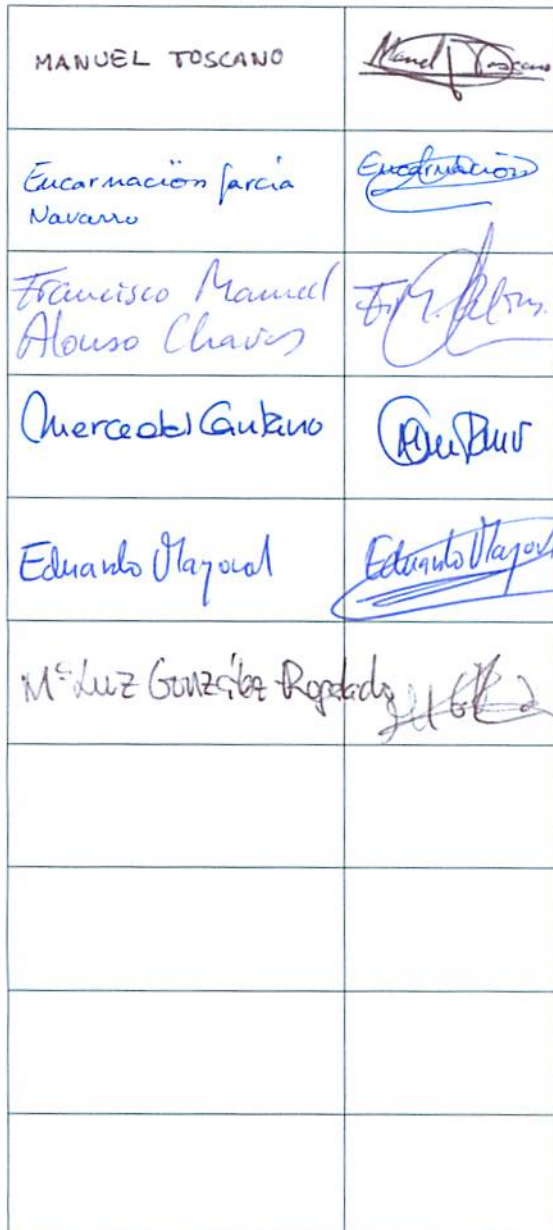 MANUEL TOSCANO Manuel Toscano
Encarnación García Encarnación
Navarro
Francisco Manuel F.M.
Alonso Chaves
Mercedes
Eduardo Mayoral Eduardo Mayoral
Mª Luz González-Regalado